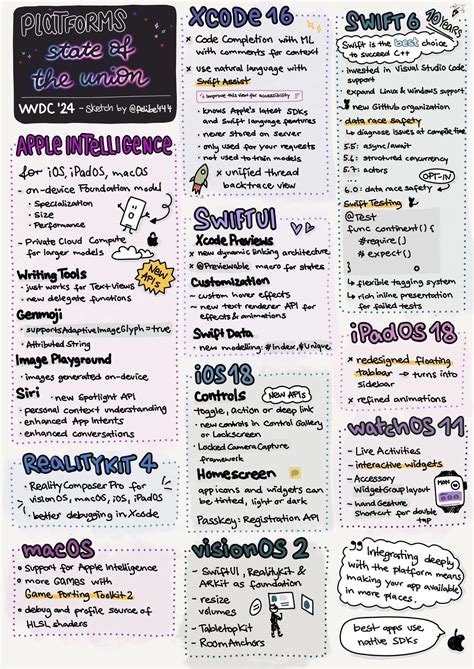 PLATFORMS
state of
the union
WWDC '24 - Sketch by @felibe444
APPLE INTELLIGENCE
for iOS, iPadOS, macOS
- on-device Foundation model
• Specialization
• Size
• Performance
- Private Cloud Compute
for larger models
NEW APIs
Writing Tools
• just works for Text Views
• new delegate functions
Genmoji
• supportsAdaptiveImageGlyph = true
• Attributed String
Image Playground
• images generated on-device
Siri
• new Spotlight API
• personal context understanding
• enhanced App Intents
• enhanced conversations
REALITYKIT 4
• RealityComposer Pro for
visionOS, macOS, iOS, iPadOS
• better debugging in Xcode
macOS
• support for Apple Intelligence
• more GAMES with
Game Porting Toolkit 2
• debug and profile source of
HLSL shaders
XCODE 16
× Code Completion with ML
with comments for context
× use natural language with
Swift Assist
↳ improve this view for accessibility
- knows Apple's latest SDKs
and Swift language features
- never stored on server
- only used for your requests
- not used to train models
× unified thread
backtrace view
SWIFTUI
Xcode Previews
× new dynamic linking architecture
× @Previewable macro for states
Customization
~ custom hover effects
~ new text renderer API for
effects & animations
Swift Data
~ new modelling: #Index, #Unique
iOS 18
Controls
NEW APIs
• toggle, action or deep link
• new controls in Control Gallery
or Lockscreen
• Locked Camera Capture
framework
Homescreen
app icons and widgets can
be tinted, light or dark
Passkey: Registration API
visionOS 2
- SwiftUI, RealityKit &
ARKit as foundation
- resize
volumes
- TabletopKit
- RoomAnchors
SWIFT 6
10 YEARS
Swift is the best choice
to succeed C++
- invested in Visual Studio Code
support
- expand Linux & Windows support
- new GitHub organization
data race safety
↳ diagnose issues at compile time
5.5: async/await
5.6: structured concurrency
5.7: actors
OPT-IN
6.0: data race safety
Swift Testing
@Test
func continent() {
#require()
#expect()
}
↳ flexible tagging system
↳ rich inline presentation
for failed tests
iPadOS 18
× redesigned floating
tabbar → turns into
sidebar
× refined animations
watchOS 11
- Live Activities
- interactive widgets
- Accessory
WidgetGroup layout
- hand Gesture
Shortcut for double
tap
"Integrating deeply
with the platform means
making your app available
in more places."
best apps use
native SDKs